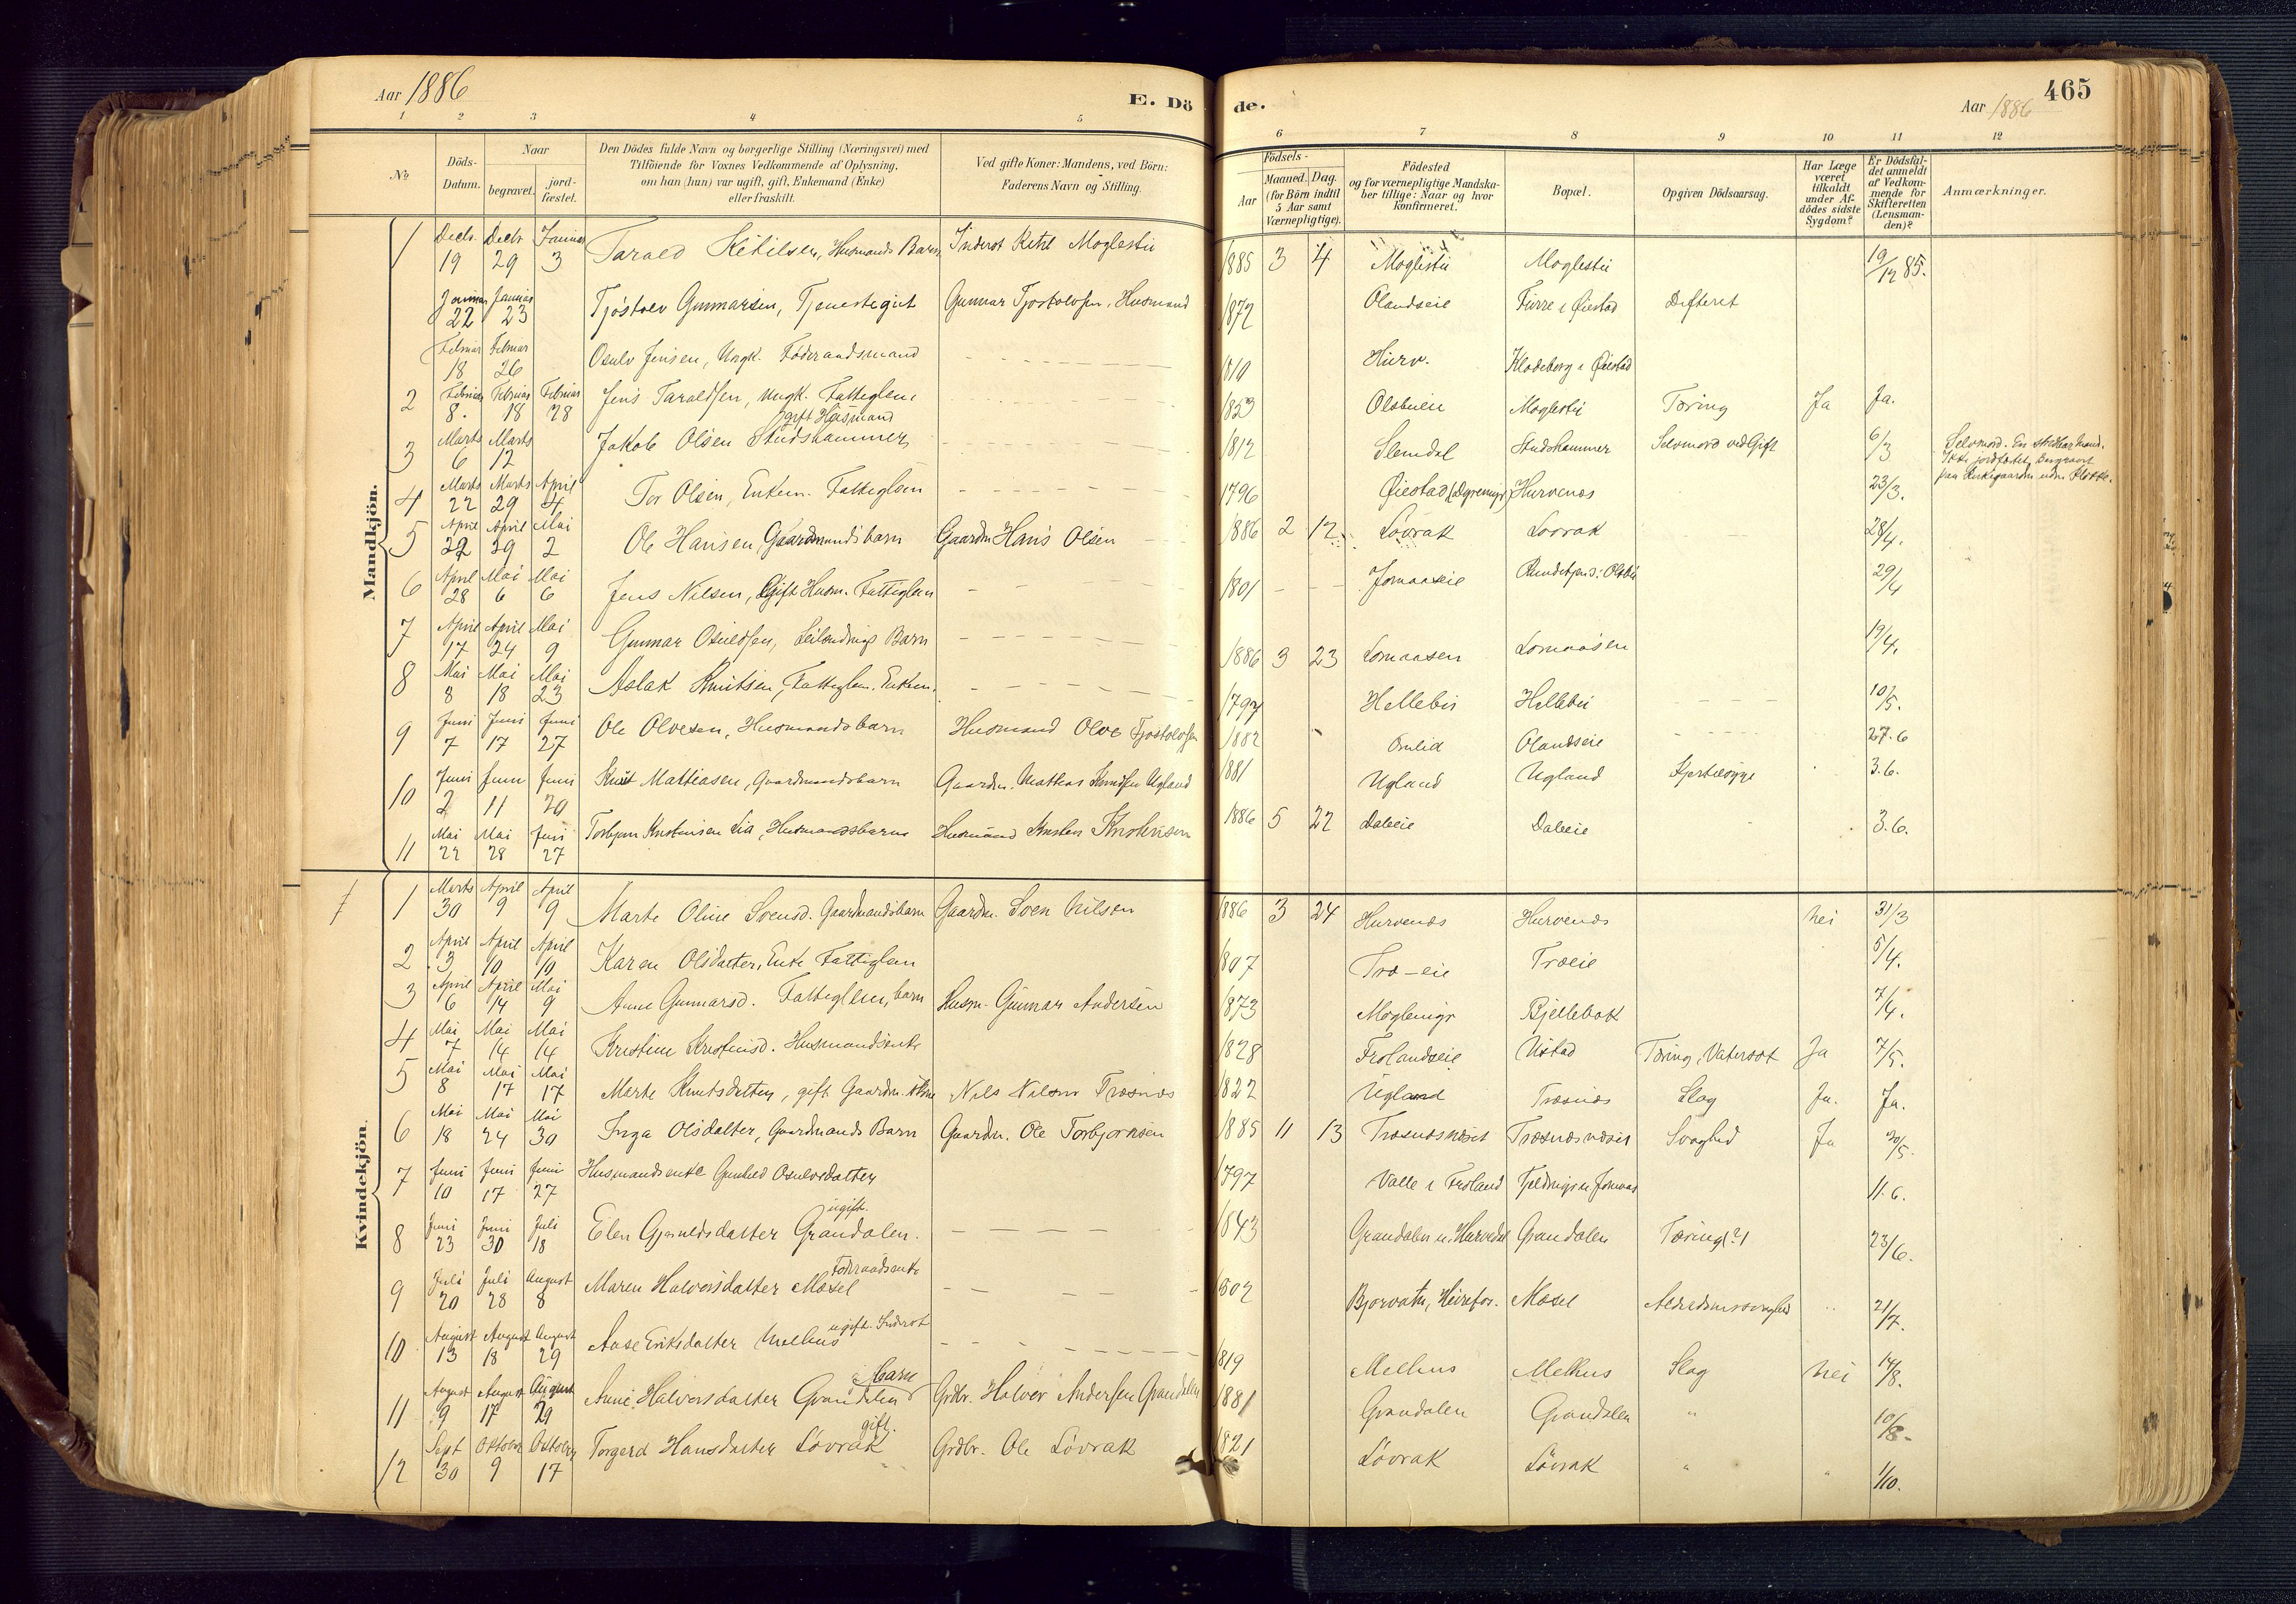 Aar 1886
E. Dö
de.
Aar 1886
465
1 2 3 4 5 6 7 8 9 10 11 12
No
Döds-Datum.
Naar
begravet.
jord-fæstet.
Den Dödes fulde Navn og borgerlige Stilling (Næringsvei) med
Tilföiende for Voxnes Vedkommende af Oplysning,
om han (hun) var ugift, gift, Enkemand (Enke)
eller fraskilt.
Ved gifte Koner: Mandens, ved Börn:
Faderens Navn og Stilling.
Födsels-
Aar
Maaned. Dag.
(for Börn indtil
5 Aar samt
Værnepligtige).
Födested
og for værnepligtige Mandska-
ber tillige: Naar og hvor
konfirmeret.
Bopæl.
Opgiven Dödsaarsag.
Har Læge
været
tilkaldt
under Af-
dödes sidste
Sygdom?
Er Dödsfal-
det anmeldt
af Vedkom-
mende for
Skifteretten
(Lensman-
den)?
Anmærkninger.
Mandkjön.
1 Decbr. 19 Decbr 29 Januar 3 Tarald Ketilsen, Husmands Barn Inderst Ketil Moglestu 1885 3 4 Moglestu Moglestu 19/12 85.
Januar 22 Januar 23 Tjöstolv Gunnarsen, Tjenestegut Gunnar Tjostolvsen, Husmand 1872 Olandseie Furre i Øiestad Difterit
Februar 18 Februar 26 Osulv Jensen, Ungk. Föderaadsmand 1810 Hurv. Klodeborg i Øiestad
2 Februar 8. Februar 18 Februar 28 Jens Taraldsen, Ungk. Fattiglem 1853 Olsbueie Moglestu Tæring Ja Ja.
3 Marts 6 Marts 12 Jakob Olsen Studshammer, gift Husmand 1812 Slemdal Studshammer Selvmord ved Gift 6/3 Selvmord. En
Ikke jordfæstet. Begravet
paa Kirkegaarden uden Klokke.
4 Marts 22 Marts 29 April 4 Tor Olsen, Enkem. Fattiglem 1796 Øiestad Hurvenæs 23/3.
5 April 22 April 29 Mai 2 Ole Hansen, Gaardmandsbarn Gaardm Hans Olsen 1886 2 12 Løvrak Lovrak 28/4.
6 April 28 Mai 6 Mai 6 Jens Nilsen, Gift Husm. Fattiglem 1801 Jomaaseie 29/4
7 April 17 April 24 Mai 9 Gunnar Osuldsen, Leilendings Barn 1886 3 23 Lomaasen Lomaasen 19/4.
8 Mai 8 Mai 18 Mai 23 Aslak Knutsen, Fattiglem. Enkem. 1797 Hellebu Hellebu 10/5.
9 Juni 7 Juni 17 Juni 27 Ole Olvesen, Husmandsbarn Husmand Olve Tjostolvsen 1882 Omlid Olandseie 27.6
10 Juni 2 Juni 11 Juni 20 Knut Mattiasen, Gaardmandsbarn Gaardm. Mattias Knudsen Ugland 1881 Ugland Ugland 3.6.
11 Mai 22 Mai 28 Juni 27 Torbjørn Knstensen Lia, Husmandsbarn Husmand Knsten Kristensen 1886 5 22 Daleie Daleie 3.6.
Kvindekjön.
1 Marts 30 April 9 April 9 Marte Oline Svensd. Gaardmandsbarn Gaardm. Sven Nilsen 1886 3 24 Hurvenæs Hurvenæs nei 31/3
2 April 3 April 10 April 10 Karen Olsdatter, Enke Fattiglem 1807 Træ-eie Træeie 5/4.
3 April 6 April 14 Mai 9 Anne Gunnarsd. Fattiglem, barn Husm. Gunnar Andersen 1873 Bjellebok 7/4.
4 Mai 7 Mai 14 Mai 14 Kristine Kristensd. Husmandsenke 1828 Frolandseie Ustad Tæring, Vatersot Ja 7/5.
5 Mai 8 Mai 17 Mai 17 Marte Knutsdatter, gift Gaardm. Kone Nils Nilsen Træsnæs 1822 Ugland Træsnæs Slag Ja. Ja.
6 Mai 18 Mai 24 Mai 30 Inga Olsdatter, Gaardmands Barn Gaardm. Ole Torbjørnsen 1885 11 13 Træsnæsnæset Træsnæsnæset Svaghed Ja 20/5.
7 Juni 10 Juni 17 Juni 27 Husmandsenke Gunhild Osulvsdatter 1797 Valle i Froland 11.6.
8 Juni 23 Juni 30 Juli 18 Elen Gjeruldsdatter Grandalen. ugift. 1843 Grandalen u. Hurvedal Grandalen Tæring(?) 23/6.
9 Juli 20 Juli 28 August 8 Maren Halvorsdatter Mæsel Föderaadsenke 1802 Bjorvatn, Heirefos. Mæsel Alderdomssvaghed 21/7.
10 August 13 August 18 August 29 Aase Eriksdatter Melhus ugift. Inderst 1819 Melhus Melhus Slag nei 14/8.
11 August 9 August 17 August 29 Anne Halvorsdatter Grandalen Barn Grdbr. Halvor Andersen Grandalen 1881 Grandalen Grandalen " 10/8.
12 Sept 30 Oktober 9 Oktober 17 Torgerd Hansdatter Løvrak gift. Grdbr. Ole Lövrak 1821 Lövrak Lövrak " " 1/10.